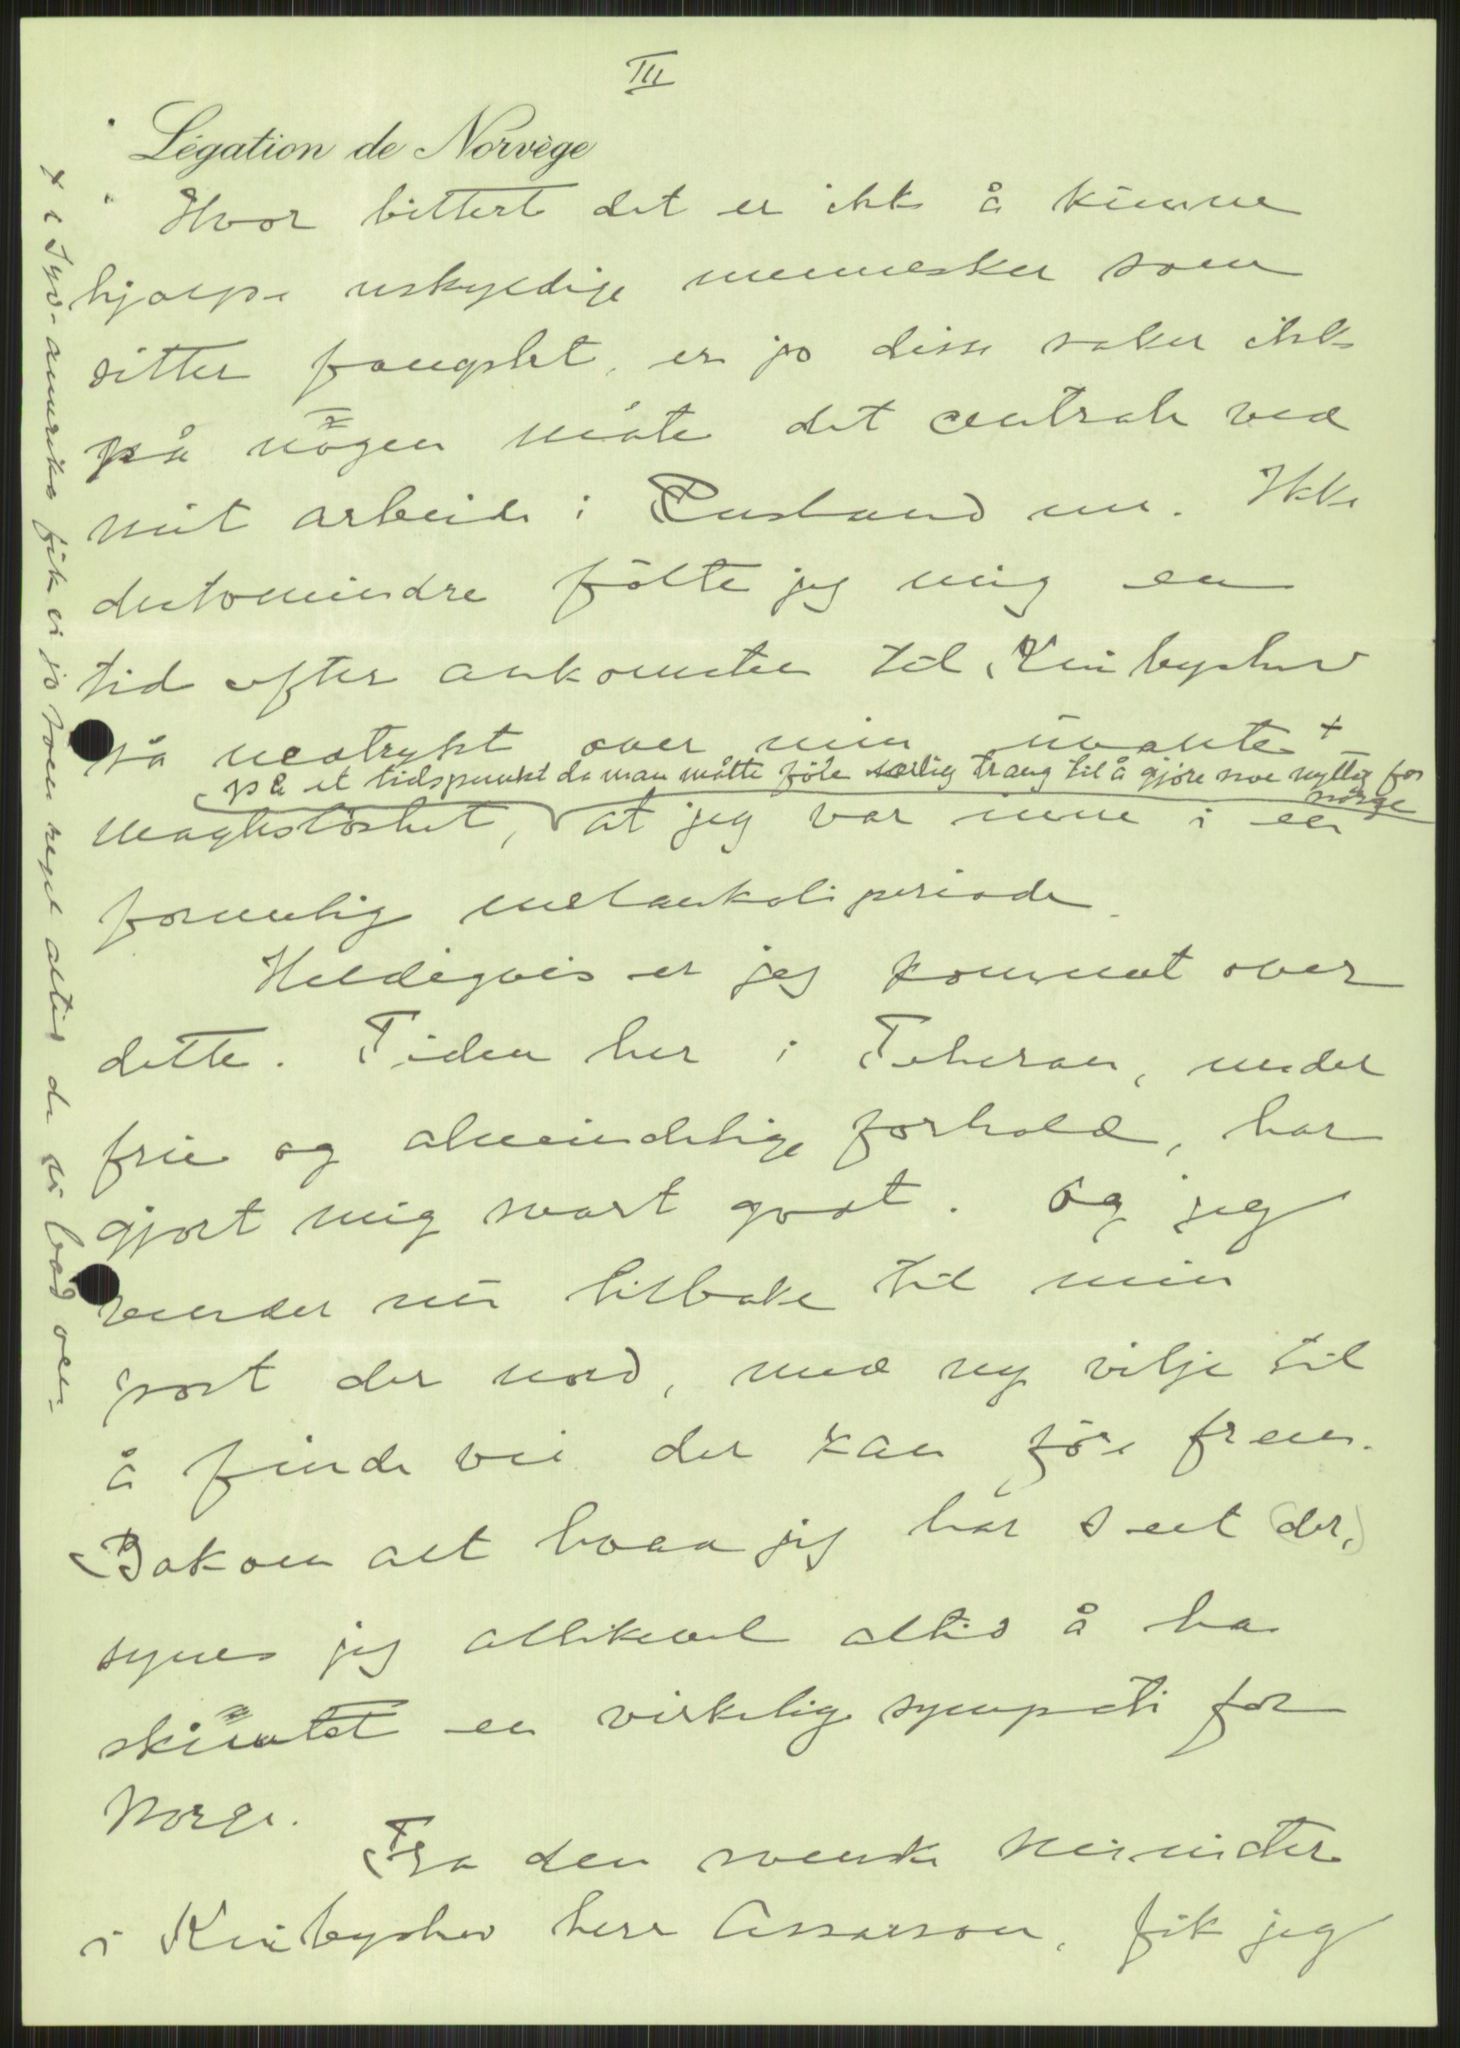 III
Légation de Norvège
Hvor bittert det er ikke å kunne
hjælpe uskyldige mennesker som
sitter fængslet, er jo disse saker ikke
på nogen måte det centrale ved
mit arbeide i Rusland nu. Ikke
destomindre følte jeg mig en
tid efter ankomsten til Kuibyshev
så nedtrykt over min uvante +
på et tidspunkt da man måtte föle særlig trang til å gjøre noe nyttig for
Norge
magtesløshet, at jeg var inne i en
formelig melankoliperiode.
Heldigvis er jeg kommet over
dette. Tiden her i Teheran, under
frie og almindelige forhold, har
gjort mig svært godt. Og jeg
vender nu tilbake til min
post der nord, med ny vilje til
å finde vei der kan före frem.
Bakom alt hvad jeg har sett (der,)
synes jeg allikevel altid å ha
skimtet en virkelig sympati for
Norge.
Fra den svenske minister
i Kuibyshev herr Assarsson, fik jeg
+ i Syd-amerika fik vi jo som regel altid det vi bad om.